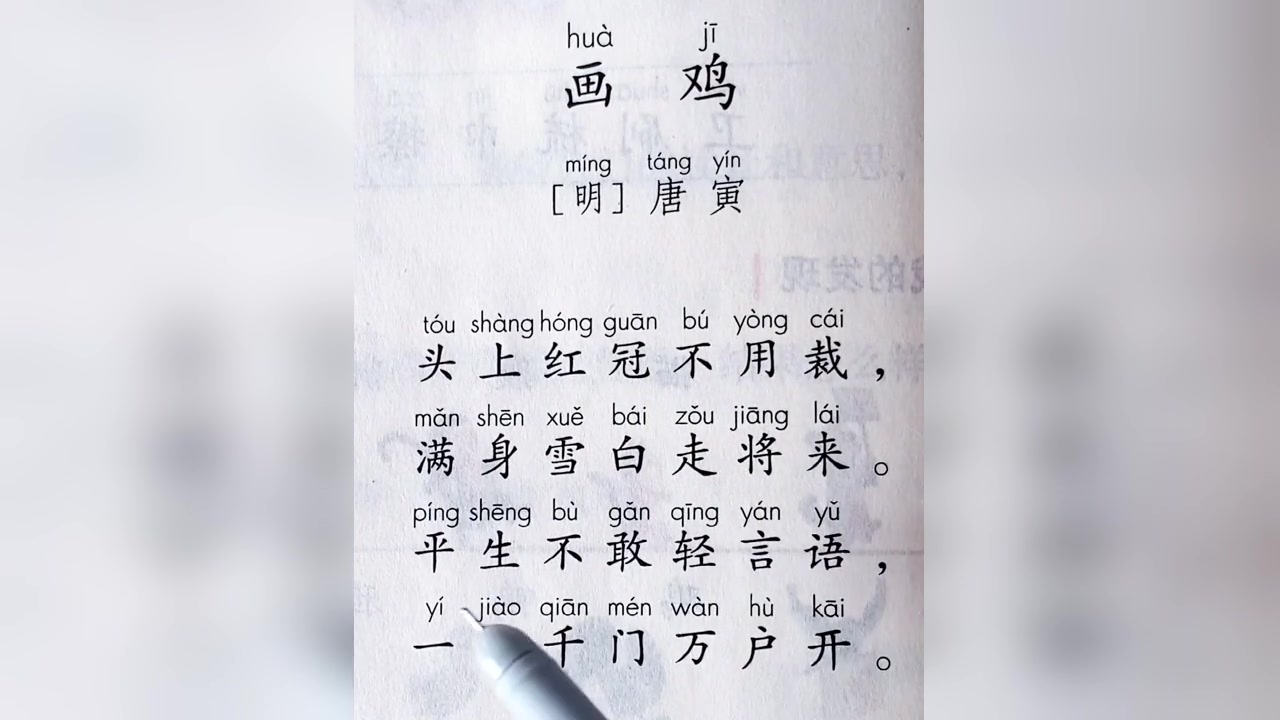 huà jī
画 鸡
míng táng yín
[明] 唐 寅
tóu shàng hóng guān bú yòng cái
头 上 红 冠 不 用 裁，
mǎn shēn xuě bái zǒu jiāng lái
满 身 雪 白 走 将 来。
píng shēng bù gǎn qīng yán yǔ
平 生 不 敢 轻 言 语，
yí jiào qiān mén wàn hù kāi
一 千 门 万 户 开。